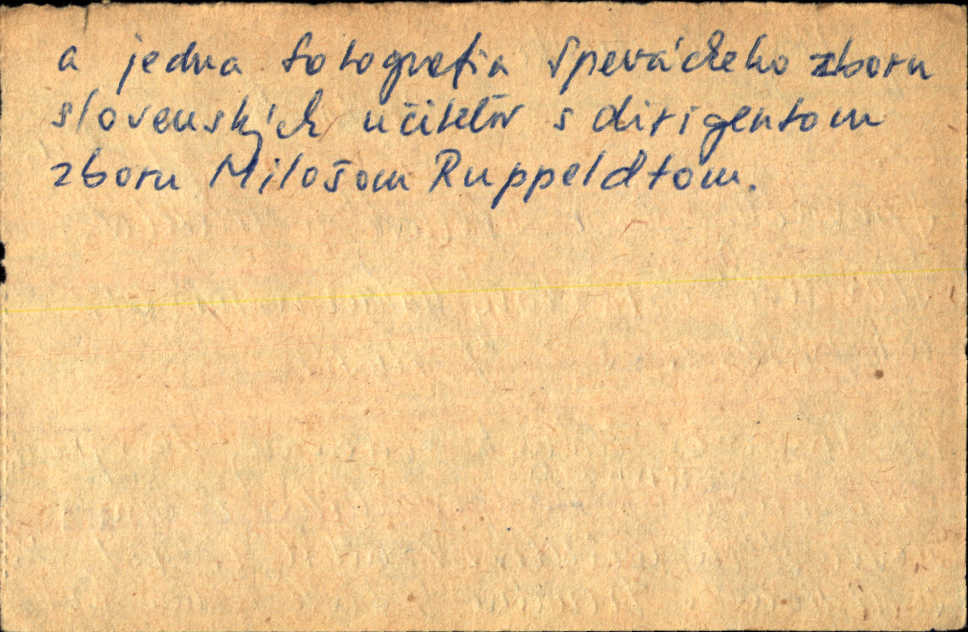 a jedna fotografia Speváckeho zboru
slovenských učiteľov s dirigentom
zboru Milošom Ruppeldtom.